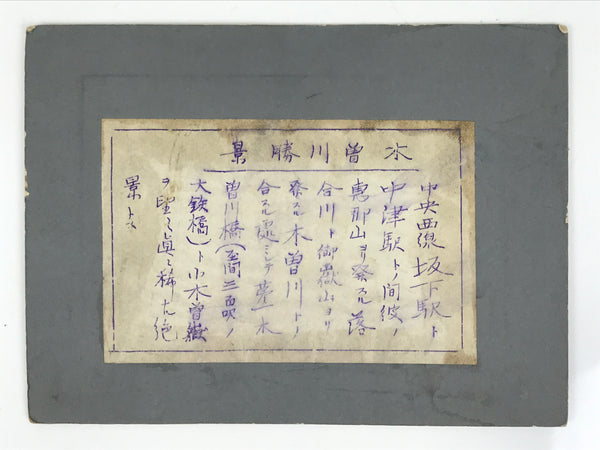 木曽川勝景
中央西線坂下駅ト
中津駅トノ間彼ノ
恵那山ヨリ発スル落
合川ト御嶽山ヨリ
発スル木曽川トノ
合スル処ニシテ第一木
曽川橋(径間三百呎ノ
大鉄橋)ト小木曽嶽
ヲ望ム真ニ稀ナル絶
景トス